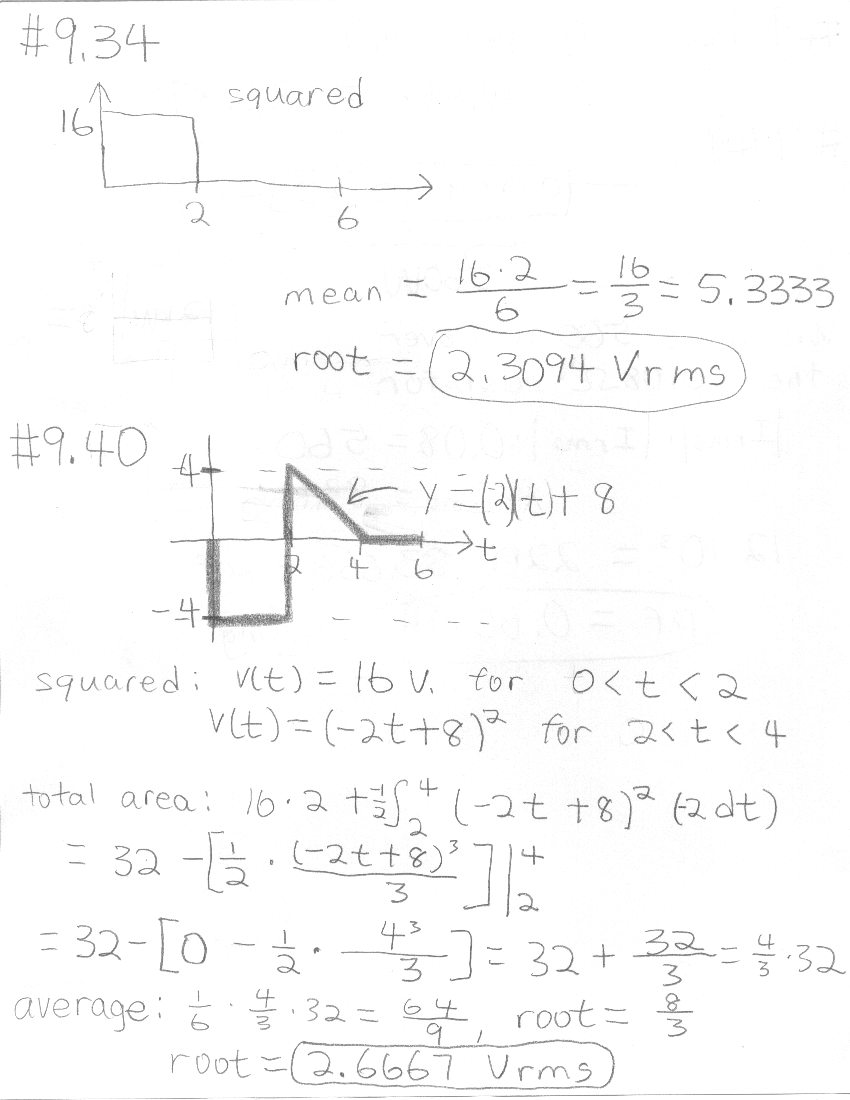 #9.34
squared
16
2 6
mean = 16·2/6 = 16/3 = 5.3333
root = 2.3094 Vrms
#9.40
4
y = (-2)(t) + 8
2 4 6 t
-4
squared: v(t) = 16 v. for 0 < t < 2
v(t) = (-2t+8)² for 2 < t < 4
total area: 16·2 + -1/2 ∫₂⁴ (-2t +8)² (-2 dt)
= 32 - [1/2 · (-2t+8)³/3]|₂⁴
= 32 - [0 - 1/2 · 4³/3] = 32 + 32/3 = 4/3·32
average: 1/6 · 4/3 · 32 = 64/9, root = 8/3
root = 2.6667 Vrms